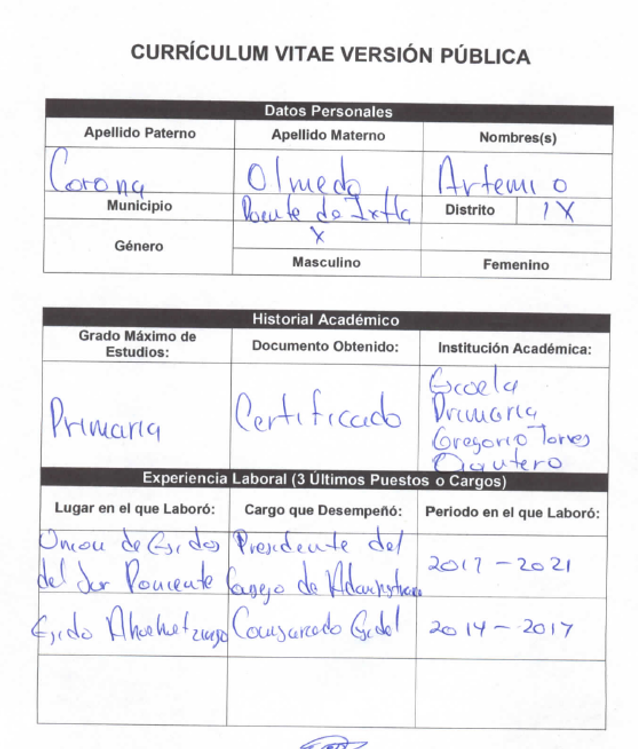 CURRÍCULUM VITAE VERSIÓN PÚBLICA
Datos Personales
Apellido Paterno Apellido Materno Nombres(s)
Corona Olmedo Artemio
Municipio Puente de Ixtla Distrito IX
Género X
Masculino Femenino
Historial Académico
Grado Máximo de
Estudios: Documento Obtenido: Institución Académica:
Primaria Certificado Escuela
Primaria
Gregorio Torres
Experiencia Laboral (3 Últimos Puestos o Cargos)
Lugar en el que Laboró: Cargo que Desempeñó: Periodo en el que Laboró:
Union de Ejidos Presidente del 2017 - 2021
del Sur Poniente Consejo de
Ejido Ahuehuetzingo Comisariado Ejidal 2014 - 2017